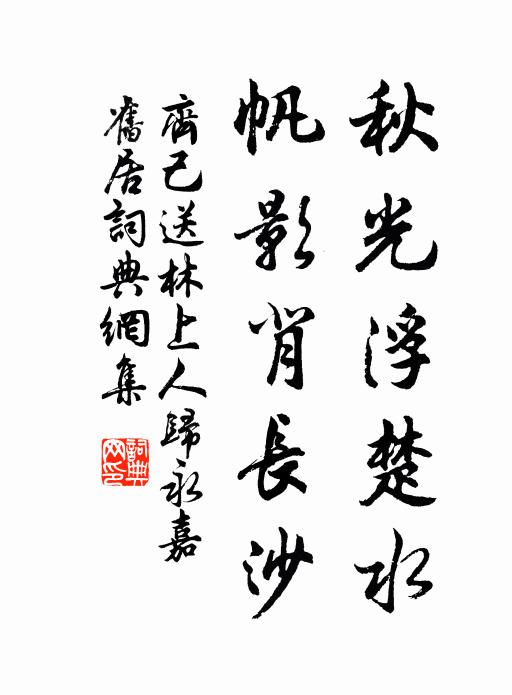 秋光浮楚水
帆影背長沙
齊己送林上人歸永嘉
舊居詞典網集
詞典网印